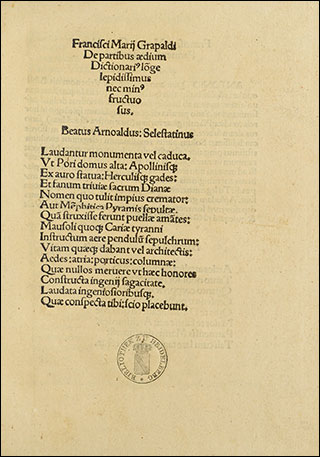 Francisci Marij Grapaldi
De partibus ædium
Dictionariꝰ lõge
lepidissimus
nec minꝰ
fructuo
sus.
Beatus Arnoaldus: Selestatinus
Laudantur monumenta vel caduca,
Vt Pori domus alta: Apollinisqꝫ
Ex auro statua: Herculisqꝫ gades:
Et fanum triuiæ sacrum Dianæ
Nomen quo tulit impius cremator:
Aut Mẽphitica Pyramis sepultæ.
Quã struxisse ferunt puellæ amãtes:
Mausoli quoqꝫ Cariæ tyranni
Instructum aere pendulũ sepulchrum:
Vitam quæqꝫ dabant vel architectis:
Aedes: atria: porticus: columnæ:
Quæ nullos meruere vt hæc honores
Constructa ingenij sagacitate,
Laudata ingeniosioribusqꝫ,
Quæ conspecta tibi: scio placebunt.
BIBLIOTHEK ZU HEIDELBERG